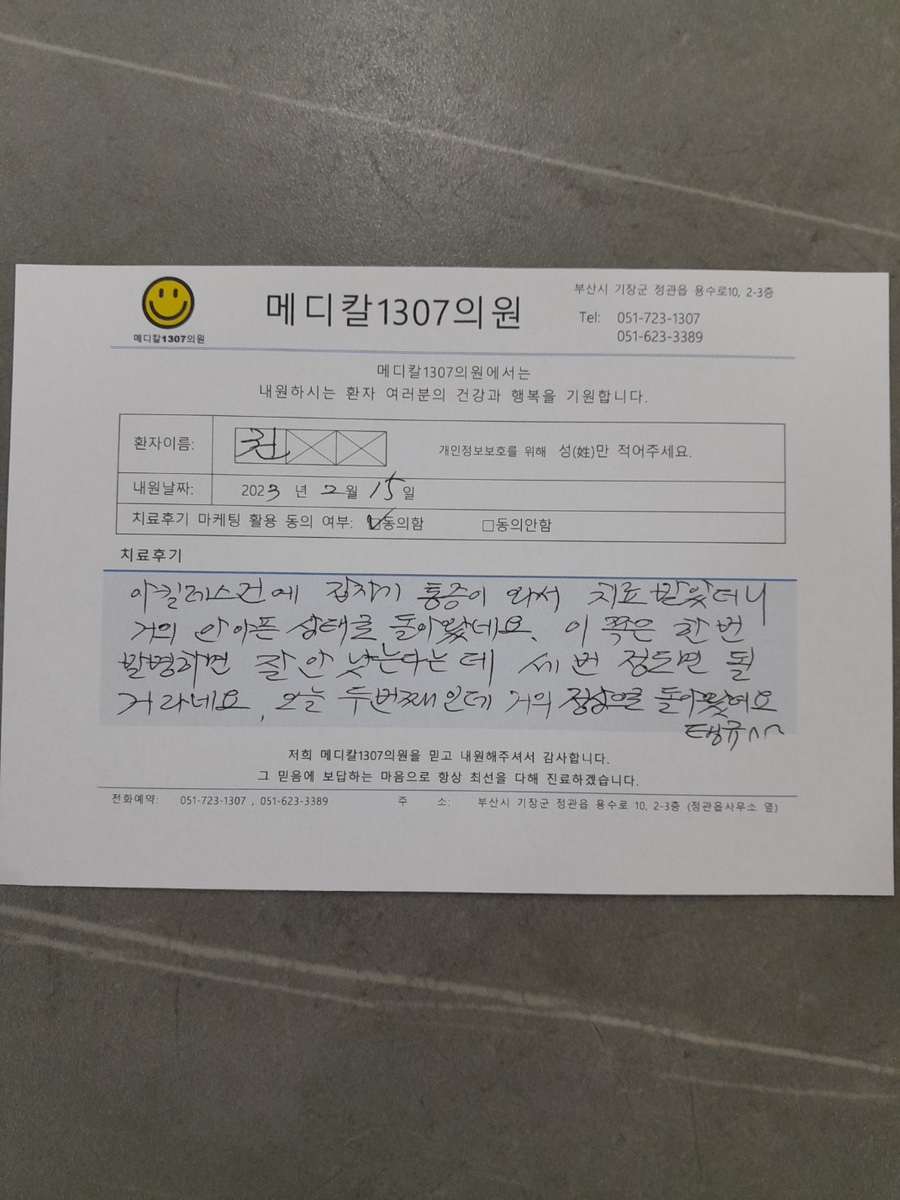 메디칼1307의원
메디칼1307의원
부산시 기장군 정관읍 용수로10, 2-3층
Tel: 051-723-1307
051-623-3389
메디칼1307의원에서는
내원하시는 환자 여러분의 건강과 행복을 기원합니다.
환자이름: 권 개인정보보호를 위해 성(姓)만 적어주세요.
내원날짜: 2023 년 2월 15일
치료후기 마케팅 활용 동의 여부: ☑동의함 □동의안함
치료후기
아킬레스건에 갑자기 통증이 와서 치료받았더니
거의 안아픈 상태로 돌아왔네요. 이 쪽은 한번
발병하면 잘 안 낫는다는데 세번 정도면 될
거라네요, 오늘 두번째인데 거의 정상으로 돌아왔어요
땡큐^^
저희 메디칼1307의원을 믿고 내원해주셔서 감사합니다.
그 믿음에 보답하는 마음으로 항상 최선을 다해 진료하겠습니다.
전화예약: 051-723-1307 , 051-623-3389 주 소: 부산시 기장군 정관읍 용수로 10, 2-3층 (정관읍사무소 옆)